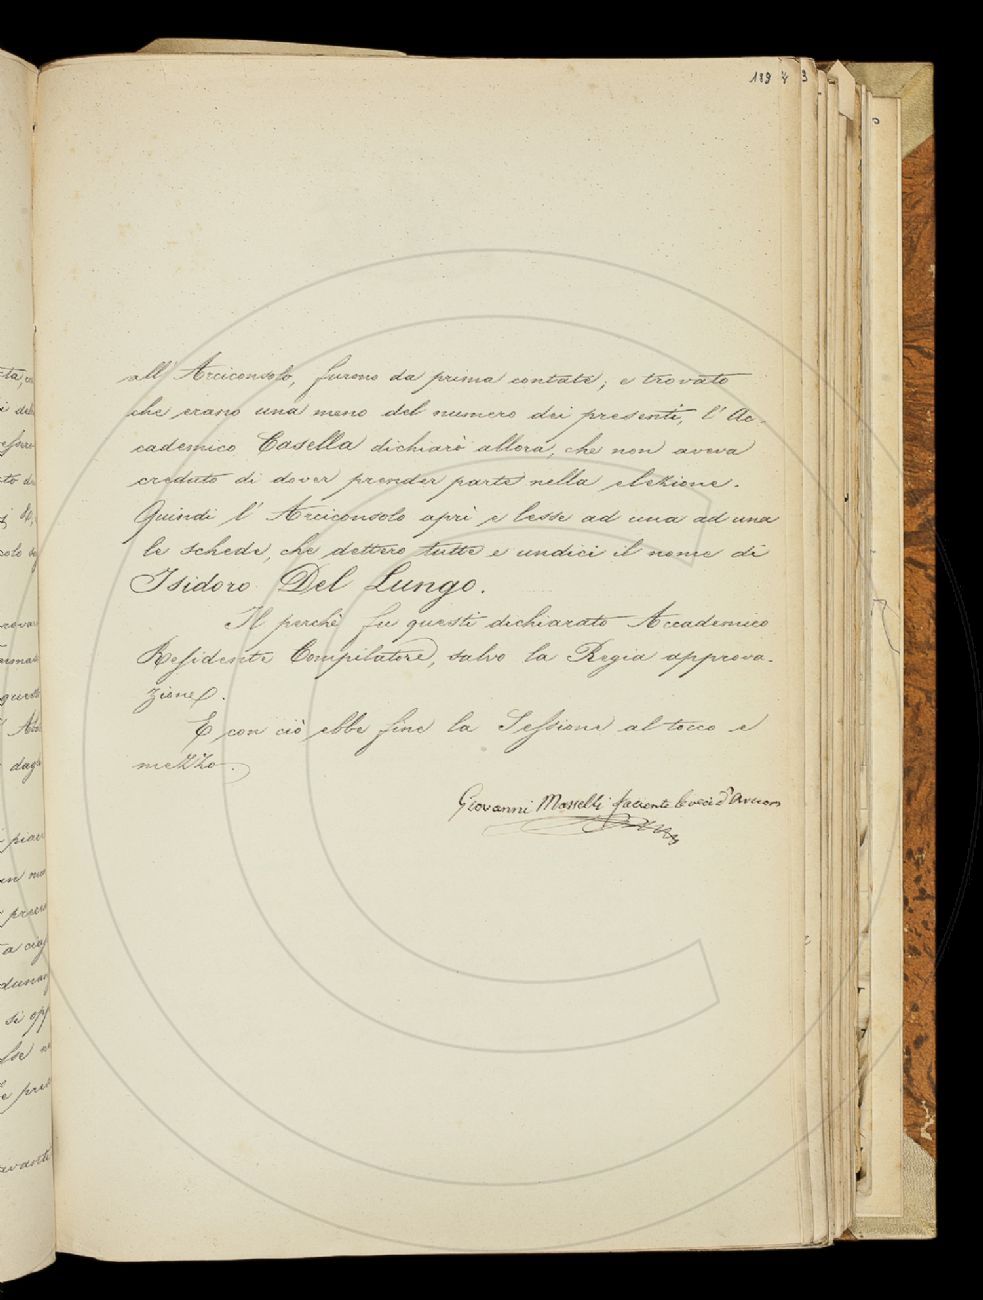 189
all' Arciconsolo, furono da prima contate; e trovato
che erano una meno del numero dei presenti, l' Ac-
cademico Casella dichiarò allora, che non aveva
creduto di dover prender parte nella elezione.
Quindi l' Arciconsolo aprì e lesse ad una ad una
le schede, che dettero tutte e undici il nome di
Isidoro Del Lungo.
Il perchè fu questi dichiarato Accademico
Residente Compilatore, salvo la Regia approva-
zione.
E con ciò ebbe fine la Sessione al tocco e
mezzo.
Giovanni Masselli facente le veci d'